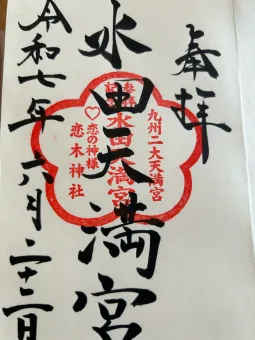 奉拝
水田天満宮
令和七年六月二十二日
九州二大天満宮
水田天満宮
♡恋の神様
恋木神社